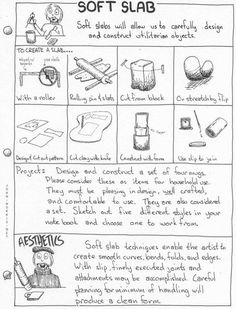 SOFT SLAB
Soft slabs will allow us to carefully design
and construct utilitarian objects.
TO CREATE A SLAB....
With a roller
Rolling pin & slats
Cut from block
Or stretch by flip
Design & cut out pattern
Cut clay with knife
Construct with form
Use slip to join
Project: Design and construct a set of four mugs.
Please consider these as items for household use.
They must be pleasing in design, well crafted,
and comfortable to use. They are also considered
a set. Sketch out five different styles in your
note book and choose one to work from.
AESTHETICS
Soft slab techniques enable the artist to
create smooth curves, bends, folds, and edges.
With slip, finely executed joints and
attachments may be accomplished. Careful
planning for minimum of handling will
produce a clean form.